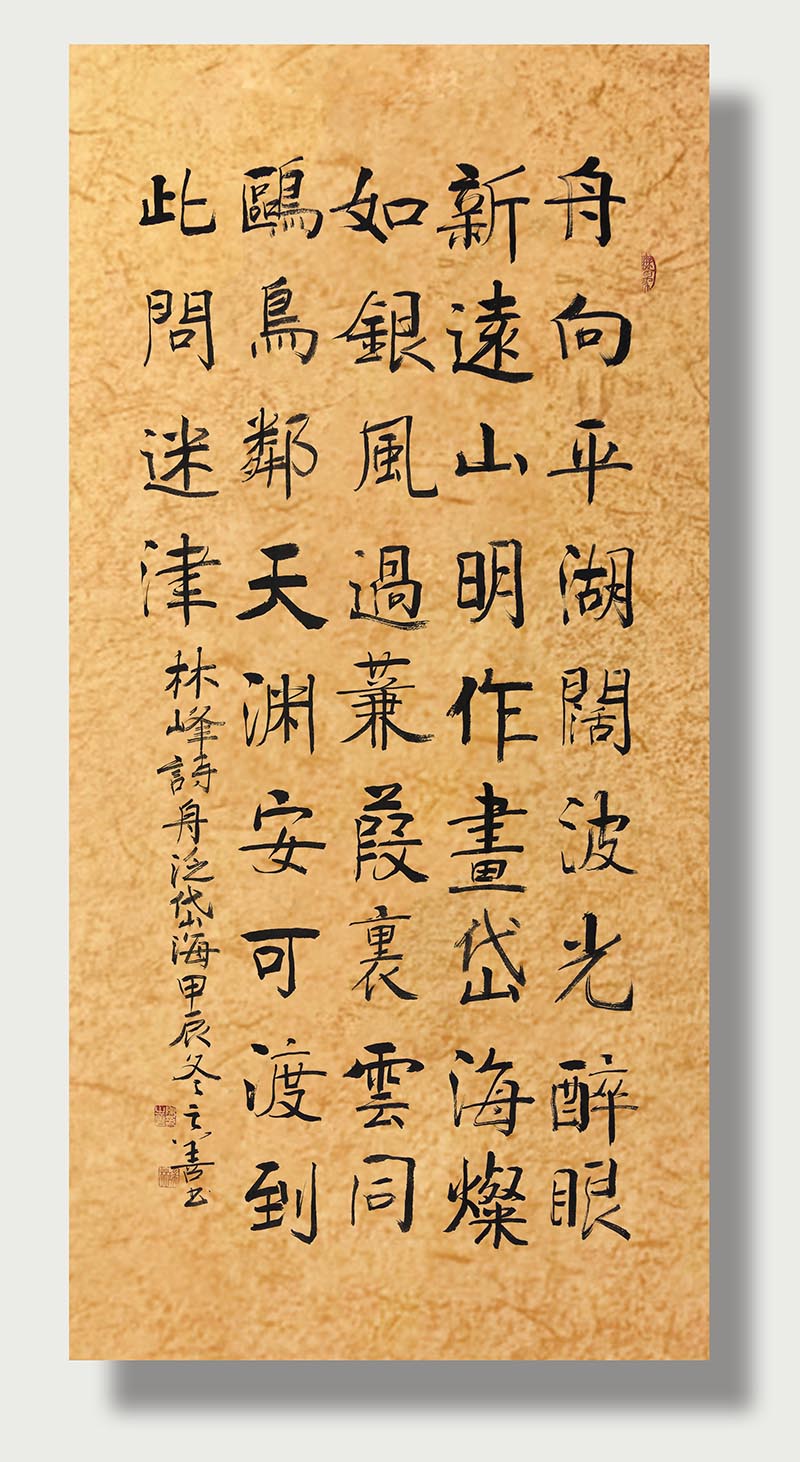 舟向平湖闊波光醉眼
新遠山明作畫岱海燦
如銀風過蒹葭裏雲同
鷗鳥鄰天渊安可渡到
此問迷津
林峰詩舟泛岱海甲辰冬之善书